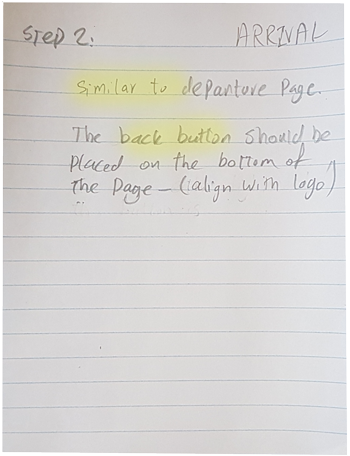 Step 2:
ARRIVAL
Similar to departure Page.
The back button should be
placed on the bottom of
the Page - (align with logo)